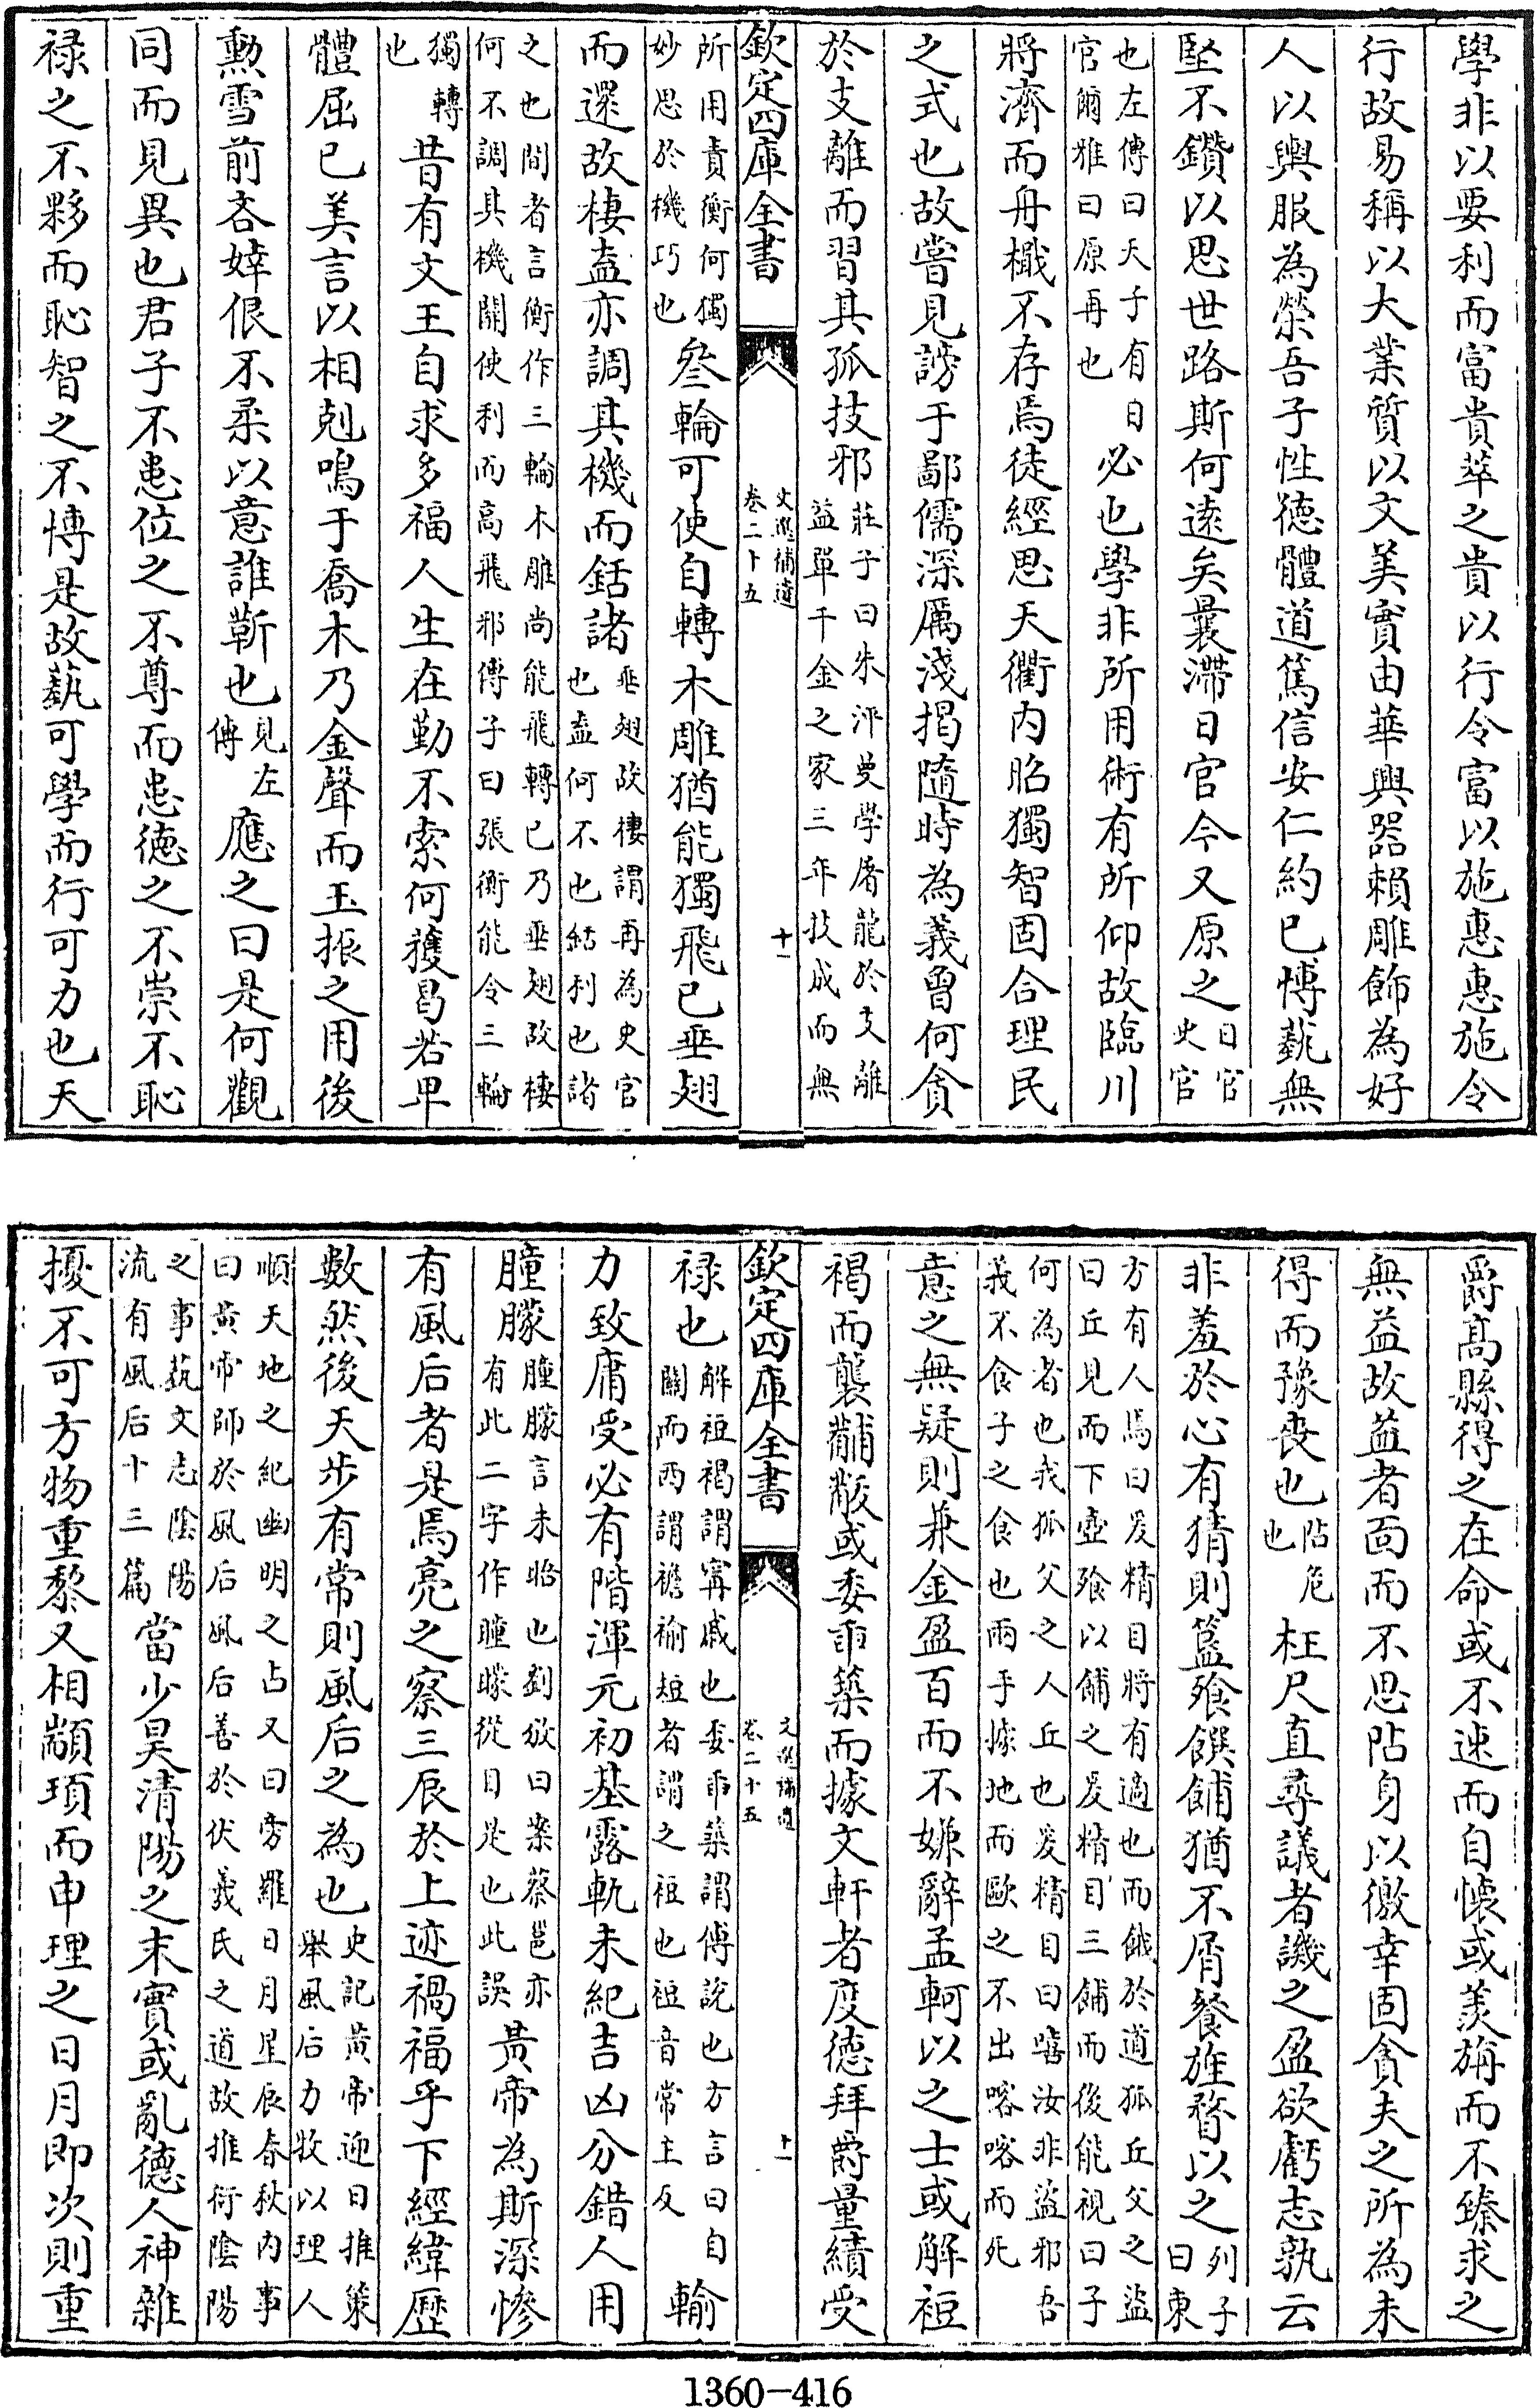 學非以要利而富貴萃之貴以行令富以施惠惠施令
行故易稱以大業質以文美實由華興器賴雕飾為好
人以輿服為榮吾子性德體道篤信安仁約已博蓺無
堅不鑽以思世路斯何逺矣曩滯日官今又原之日官史官
也左傳曰天子有日官爾雅曰原再也必也學非所用術有所仰故臨川
將濟而舟檝不存焉徒經思天衢内昭獨智固合理民
之式也故嘗見謗于鄙儒深厲淺揭隨時為義曾何貪
於支離而習其孤技邪莊子曰朱泙曼學屠龍於支離益單千金之家三年技成而無
欽定四庫全書 文選補遺 卷二十五 十一
所用責衡何獨妙思於機巧也叄輪可使自轉木雕猶能獨飛已垂翅
而還故棲盍亦調其機而銛諸垂翅故棲謂再為史官也盍何不也銛利也諸
之也間者言衡作三輪木雕尚能飛轉已乃垂翅故棲何不調其機關使利而高飛邪傅子曰張衡能令三輪
獨轉也昔有文王自求多福人生在勤不索何獲曷若卑
體屈已美言以相剋鳴于喬木乃金聲而玉振之用後
勲雪前吝婞佷不柔以意誰靳也見左傳應之曰是何觀
同而見異也君子不患位之不尊而患德之不崇不恥
禄之不夥而恥智之不博是故蓺可學而行可力也天
爵髙縣得之在命或不速而自懐或羡旃而不臻求之
無益故益者面而不思阽身以徼幸固貪夫之所為未
得而豫䘮也阽危也枉尺直尋議者譏之盈欲虧志孰云
非羞於心有猜則簋飱饌餔猶不屑餐旌瞀以之列子曰東
方有人焉曰爰精目將有適也而餓於道狐丘父之盜曰丘見而下壺飱以餔之爰精目三餔而後能視曰子
何為者也我狐父之人丘也爰精目曰嘻汝非盜邪吾義不食子之食也兩手據地而歐之不出喀喀而死
意之無疑則兼金盈百而不嫌辭孟軻以之士或解裋
褐而襲黼黻或委臿築而據文軒者度德拜爵量績受
欽定四庫全書 文選補遺 卷二十五 十一
禄也解裋褐謂甯戚也委臿築謂傅説也方言曰自關而西謂襜褕短者謂之裋也裋音常主反輸
力致庸受必有階渾元初基靈軌未紀吉凶分錯人用
朣朦朣朦言未昭也劉攽曰案蔡邕亦有此二字作瞳曚從目是也此誤黄帝為斯深慘
有風后者是焉亮之察三辰於上迹禍福乎下經緯歴
數然後天步有常則風后之為也史記黄帝迎日推策舉風后力牧以理人
順天地之紀幽明之占又曰旁羅日月星辰春秋内事曰黄帝師於風后風后善於伏羲氏之道故推衍隂陽
之事蓺文志隂陽流有風后十三篇當少昊清陽之末實或亂德人神雜
擾不可方物重黎又相顓頊而申理之日月即次則重
1360-416